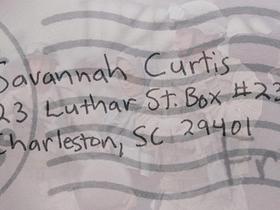 Savannah Curtis
23 Luthar St. Box #23
Charleston, SC 29401